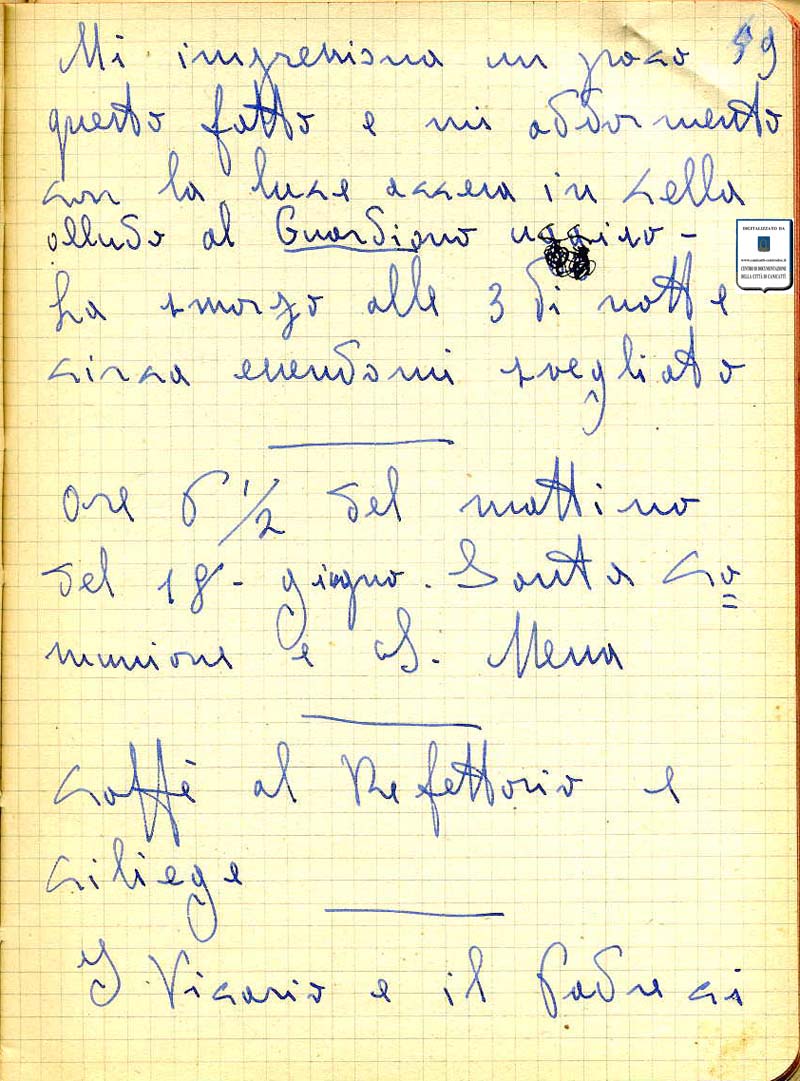 Mi impressiona un poco 59
questo fatto e mi addormento
con la luce accesa in cella
alludo al Guardiano ucciso -
La smorzo alle 3 di notte
circa essendomi svegliato
Ore 6 1/2 del mattino
del 18 - giugno. Santa Co=
munione e S. Messa
Caffè al Refettorio e
ciliege
Vicario e il Padre ci
DIGITALIZZATO DA
www.canicatti-centrodoc.it
CENTRO DI DOCUMENTAZIONE
DELLA CITTÀ DI CANICATTÌ